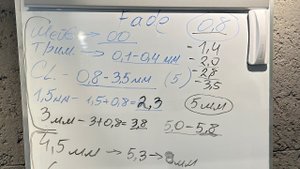 Fade
0,8
Шейв → 00
Трим. → 0,1-0,4 мм
- 1,4
- 2,0
- 2,8
- 3,5
CL. - 0,8 - 3,5 мм (5)
1,5 мм - 1,5+0,8 = 2,3
5 мм
3 мм - 3+0,8 = 3,8
5,0 - 5,8
4,5 мм → 5,3 → 8 мм